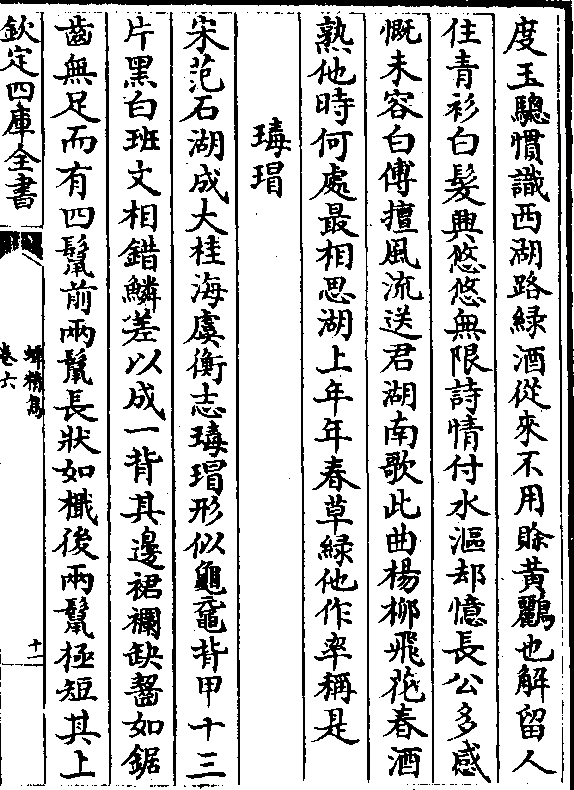 度玉驄慣識西湖路綠酒從來不用賒黄鸝也解留人
住青衫白髮興悠悠無限詩情付水漚却憶長公多感
慨未容白傅擅風流送君湖南歌此曲楊柳飛花春酒
熟他時何處最相思湖上年年春草綠他作率稱是
瑇瑁
宋范石湖成大桂海虞衡志瑇瑁形似龜黿背甲十三
片黑白班文相錯鱗差以成一背其邊裙襴缺齧如鋸
齒無足而有四鬛前兩鬛長狀如檝後兩鬛極短其上
欽定四庫全書
蟫精雋
卷六
十一